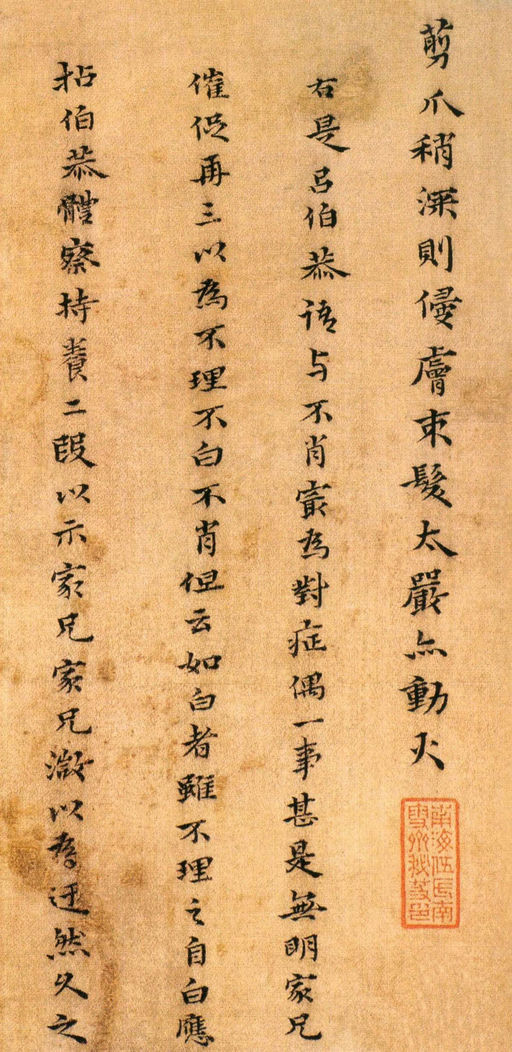 剪爪稍深則侵膚束髮太嚴亦動火
右是呂伯恭語与不肖寔為對症偶一事甚是無明家兄
催促再三以為不理不白不肖但云如白者雖不理之自白應
拈伯恭體察持養二段以示家兄家兄漖以為迂然久之